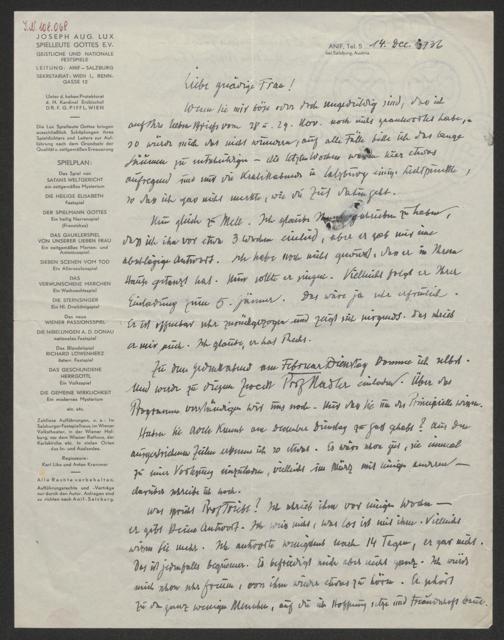 I.N. 198.068
JOSEPH AUG. LUX
SPIELLEUTE GOTTES E.V.
GEISTLICHE UND NATIONALE
FESTSPIELE
LEITUNG: ANIF-SALZBURG
SEKRETARIAT: WIEN I., RENN-
GASSE 12
Unter d. hohen Protektorat
d. H. Kardinal Erzbischof
DR. F. G. PIFFL, WIEN
Die Lux Spielleute Gottes bringen
ausschließlich Schöpfungen ihres
Spieldichters und Leiters zur Auf-
führung nach dem Grundsatz der
Qualität u. zeitgemäßen Erneuerung
SPIELPLAN:
Das Spiel von
SATANS WELTGERICHT
ein zeitgemäßes Mysterium
DIE HEILIGE ELISABETH
Festspiel
DER SPIELMANN GOTTES
Ein heilig Narrenspiel
(Franziskus)
DAS GAUKLERSPIEL
VON UNSERER LIEBEN FRAU
Ein zeitgemäßes Marien- und
Antoniusspiel
SIEBEN SCENEN VOM TOD
Ein Allerseelenspiel
DAS
VERWUNSCHENE MÄRCHEN
Ein Weihnachtsspiel
DIE STERNSINGER
Ein Hl. Dreikönigspiel
Das neue
WIENER PASSIONSSPIEL
DIE NIBELUNGEN A. D. DONAU
nationales Festspiel
Das Blondelspiel
RICHARD LÖWENHERZ
österr. Festspiel
DAS GESCHUNDENE
HERRGOTTL
Ein Volksspiel
DIE GEMEINE WIRKLICHKEIT
Ein modernes Mysterium
etc. etc.
Zahllose Aufführungen, u. a. im
Salzburger Festspielhaus, im Wiener
Volkstheater, in der Wiener Hof-
burg, vor dem Wiener Rathaus, der
Karlskirche etc. in vielen Orten
des In- und Auslandes.
Regisseure:
Karl Like und Anton Krammer
Alle Rechte vorbehalten.
Aufführungsrechte und -Verträge
nur durch den Autor. Anfragen sind
zu richten nach Anif-Salzburg.
ANIF, Tel. 5
bei Salzburg, Austria
14. Dez. 1936
Liebe gnädige Frau!
Wenn Sie mir böse oder doch ungeduldig sind, das ich
auf Ihre lieben Briefe vom 28 u. 29. Nov. noch nicht geantwortet habe,
so würde mich das nicht wundern, auf alle Fälle bitte ich das lange
Säumen zu entschuldigen - die letzten Wochen waren hier etwas
aufregend und mit die in Salzburg einige
so das ich gar nicht merkte, wie die Zeit dahingeht.
Nun gleich zu Mell. Ich glaube geschrieben zu haben,
daß ich ihn vor etwa 3 Wochen einlud, aber er gab mir eine
abschlägige Antwort. Ich habe noch nicht gewußt, das er in Ihrem
Haus gelesen hat. Nun sollte er singen. Vielleicht folgt er Ihrer
Einladung zum 6. Jänner. Das wäre ja sehr erfreulich.
Er ist offenbar sehr zurückgezogen und zeigt sich nirgends. Das schrieb
er mir auch. Ich glaube, er hat Recht.
Zu dem am Februar Dienstag komme ich selbst.
Und werde zu diesem Zweck Prof. Nadler einladen. Über das
Programm verständigen wir uns noch. Nur das Sie um das Prinzipielle wissen.
Haben Sie am Dezember Dienstag zu Gast gehabt? Aus den
Zeilen ich so etwas. Es wäre schon gut, sie einmal
zu einer Vorlesung einzuladen, vielleicht im März mit einigen anderen -
darüber schreibe ich noch.
Was spricht Prof. ? Ich schrieb ihm vor einigen Wochen -
er gibt keine Antwort. Ich weiß nicht, was los ist mit ihm. Vielleicht
wissen Sie mehr. Ich antworte wenigstens nach 14 Tagen, er gar nicht.
Das ist jedenfalls bequemer. Es befriedigt mich aber nicht ganz. Ich würde
mich schon sehr freuen, von ihm wieder etwas zu hören. Er gehört
zu den ganz wenigen Menschen, auf die ich Hoffnung setze und Freundschaft baue.